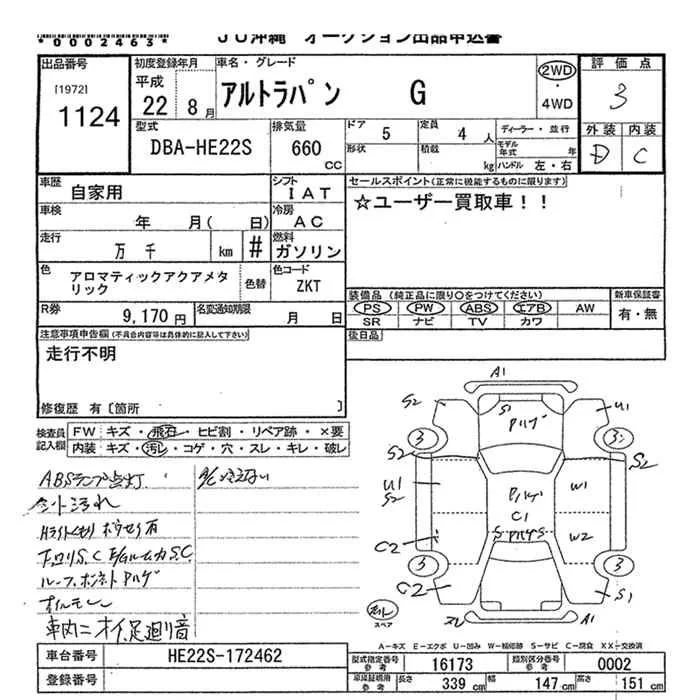 *0002463*
JU沖縄 オークション出品申込書
出品番号 初度登録年月 車名・グレード 評価点
[1972] 1124
平成 22 8月
アルトラパン G
2WD ・ 4WD
3
型式 DBA-HE22S
排気量 660 CC
ドア 5 定員 4人 ディーラー・並行
形状 積載 kg モデル年式 年 ハンドル 左・右
外装 内装
D C
車歴 自家用
シフト IAT
セールスポイント(正常に機能するものに限ります)
☆ユーザー買取車!!
車検 年 月( 日)
冷房 AC
走行 万 千 km #
燃料 ガソリン
色 アロマティックアクアメタリック
色替
色コード ZKT
装備品(純正品に限り○をつけてください) 新車保証書
PS PW ABS エアB AW 有・無
SR ナビ TV カワ
R券 9,170円
名変通知期限 月 日
後日品
注意事項申告欄(不具合内容等は具体的に記入して下さい)
走行不明
修復歴 有〔箇所 〕
検査員記入欄
FW キズ・飛石・ヒビ割・リペア跡・×要
内装 キズ・汚レ・コゲ・穴・スレ・キレ・破レ
ABSランプ点灯 A/C冷えない
シート汚れ
Hライトくもり ボウセイ有
下回りS.C E/GルームカS.C
ルーフ、ボンネットPハゲ
オイルモレ
車内ニオイ、足廻り音
A1
S2 S1 Pハゲ U1
3 3
S2 S2
U1 S2 Pハゲ W1
C1
C2 W2
3 3
C2 S1
A1
スペア
A-キズ E-エクボ U-凹み W-補修跡 S-サビ C-腐食 XX-交換済
車台番号 HE22S-172462
型式指定番号 参考 16173 類別区分番号 参考 0002
登録番号
車庫証明用 参考 長さ 339 cm 幅 147 cm 高さ 151 cm